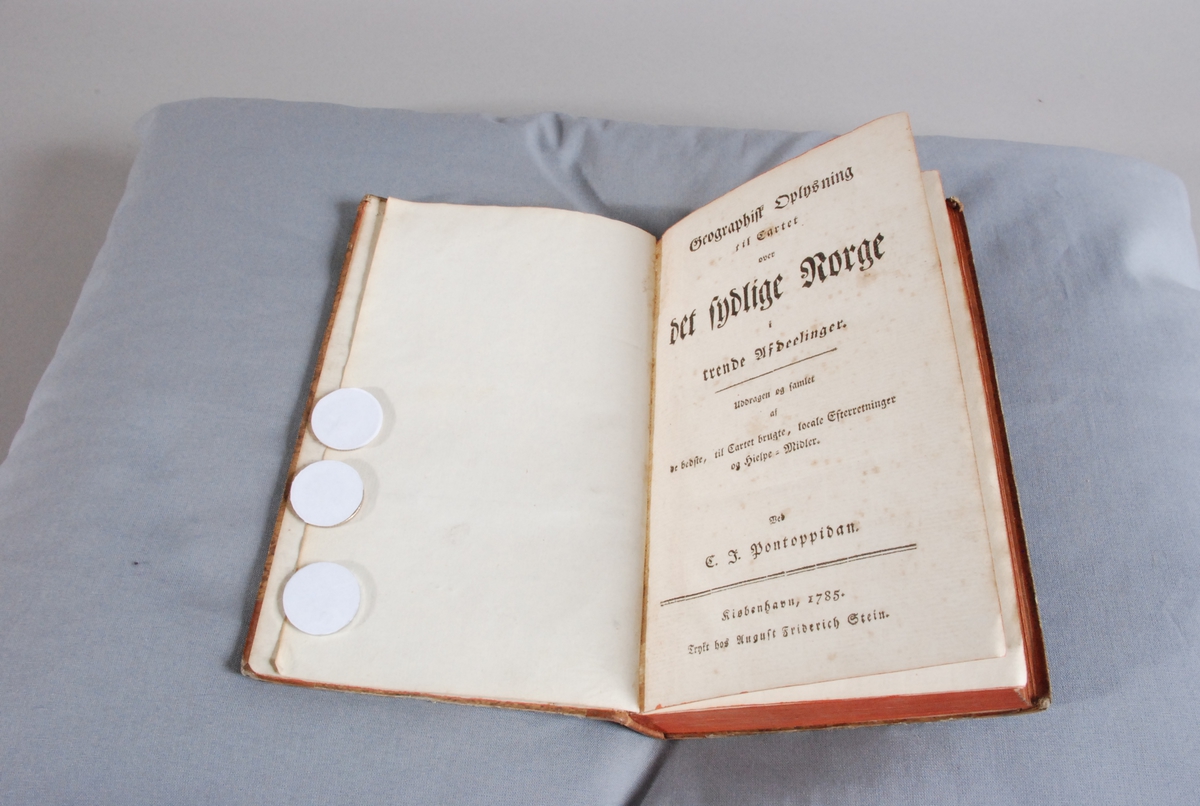 Geographisk Oplysning
til Cartet
over
det sydlige Norge
i
trende Afdeelinger.
Uddragen og samlet
af
de bedste, til Cartet brugte, locale Efterretninger
og Hielpe-Midler.
Ved
C. J. Pontoppidan.
Kiøbenhavn, 1785.
Trykt hos August Friderich Stein.